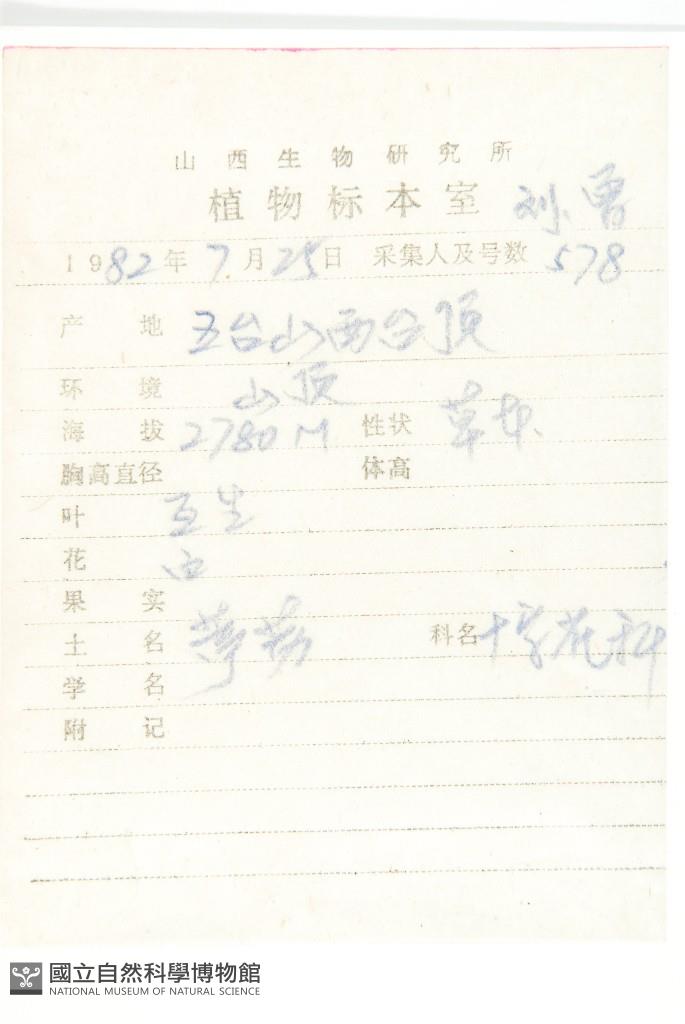 山西生物研究所
植物标本室 刘 曾
1982年7月25日 采集人及号数 578
产地 五台山西台顶
环境 山顶
海拔 2780M 性状 草本
胸高直径 体高
叶 互生
花 白
果实
土名 葶苈 科名 十字花科
学名
附记
國立自然科學博物館
NATIONAL MUSEUM OF NATURAL SCIENCE